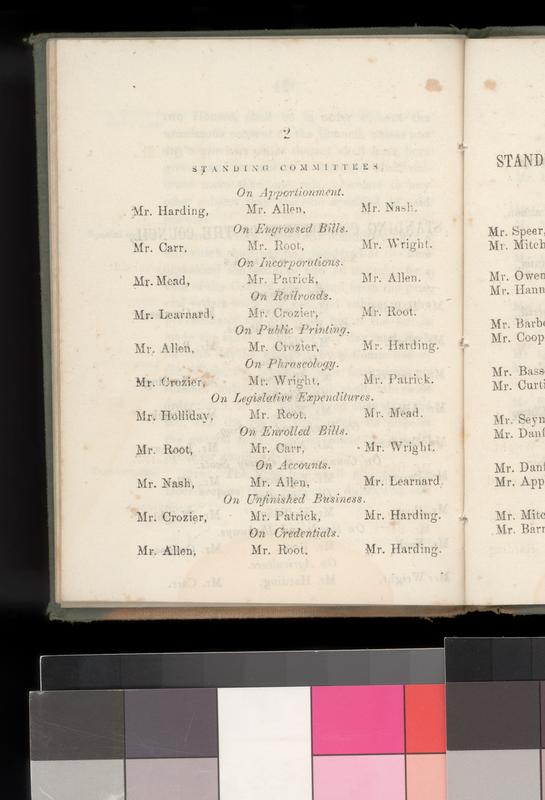 2
STANDING COMMITTEES
On Apportionment.
Mr. Harding, Mr. Allen, Mr. Nash.
On Engrossed Bills.
Mr. Carr, Mr. Root, Mr. Wright.
On Incorporations.
Mr. Mead, Mr. Patrick, Mr. Allen.
On Railroads.
Mr. Learnard, Mr. Crozier, Mr. Root.
On Public Printing.
Mr. Allen, Mr. Crozier, Mr. Harding.
On Phraseology.
Mr. Crozier, Mr. Wright, Mr. Patrick.
On Legislative Expenditures.
Mr. Holliday, Mr. Root, Mr. Mead.
On Enrolled Bills.
Mr. Root, Mr. Carr, Mr. Wright.
On Accounts.
Mr. Nash, Mr. Allen, Mr. Learnard.
On Unfinished Business.
Mr. Crozier, Mr. Patrick, Mr. Harding.
On Credentials.
Mr. Allen, Mr. Root, Mr. Harding.
STAND
Mr. Speer,
Mr. Mitch
Mr. Owen
Mr. Hann
Mr. Barbe
Mr. Coop
Mr. Bass
Mr. Curti
Mr. Seyn
Mr. Danf
Mr. Danf
Mr. App
Mr. Mitc
Mr. Barr